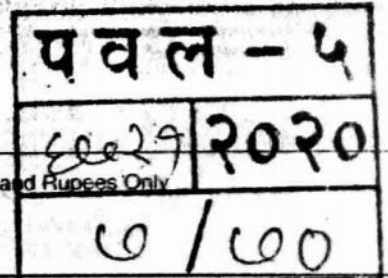 पवल - ५
२०२०
and Rupees Only
७ / ७०